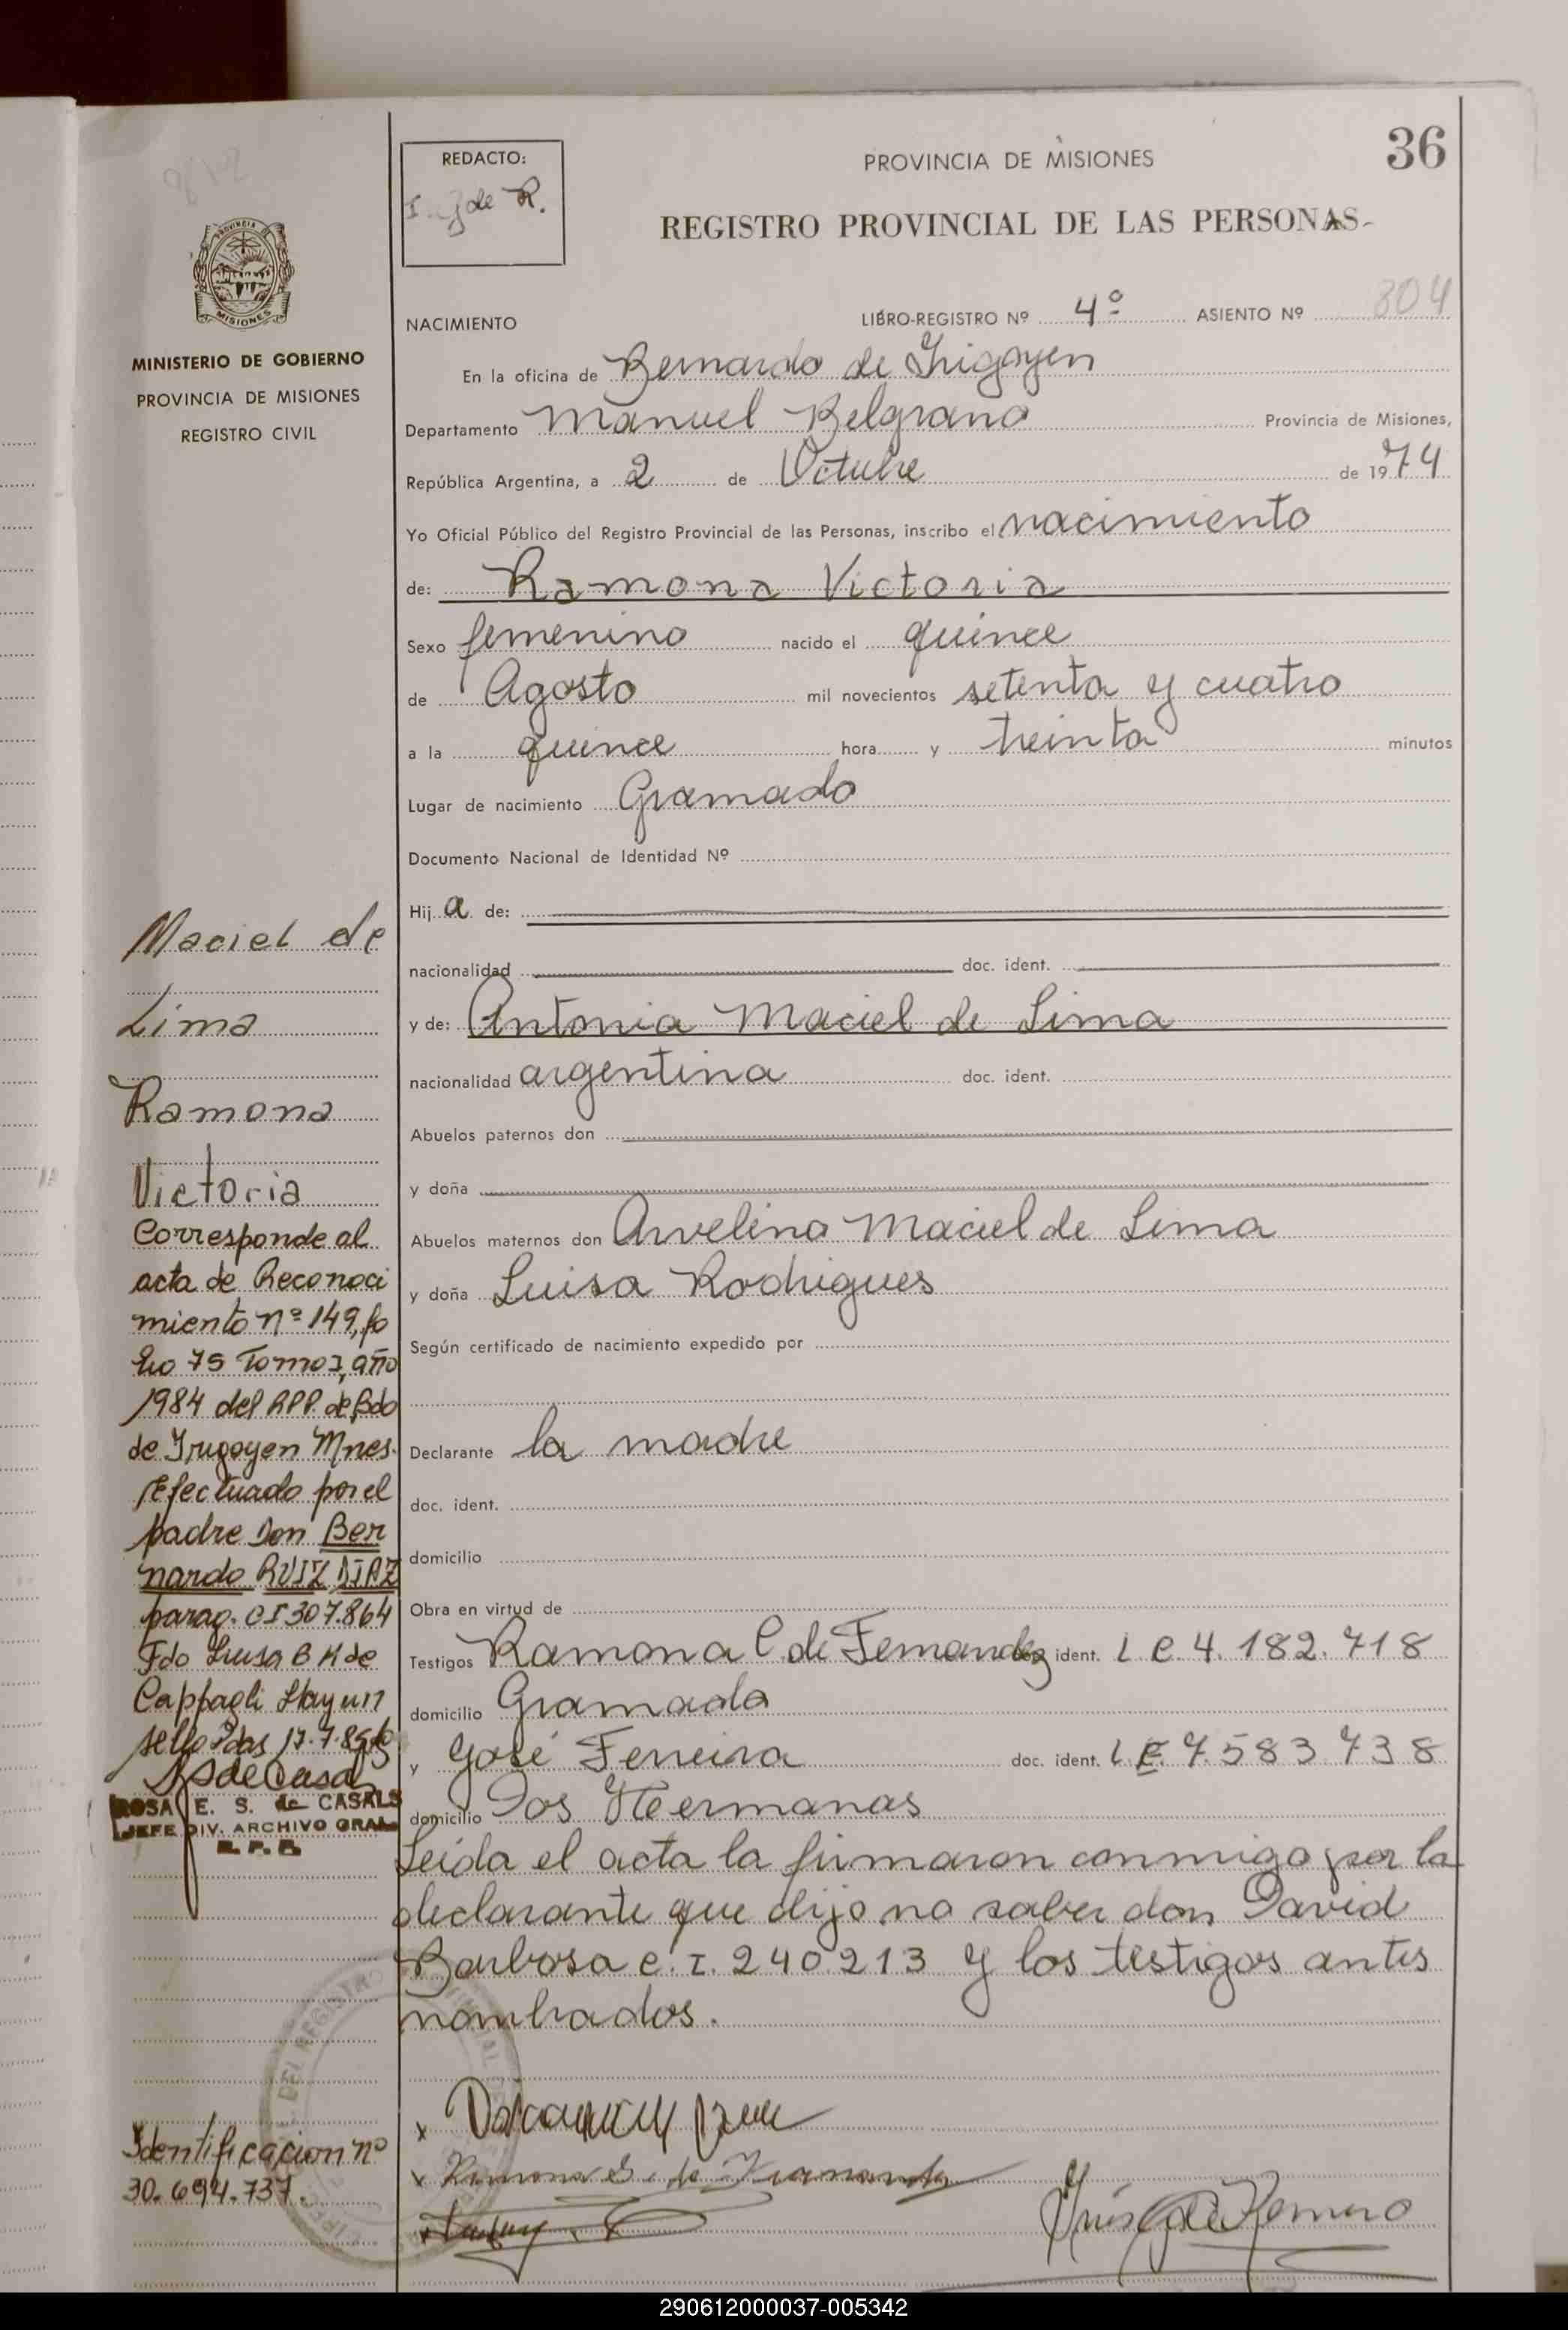 36
REDACTO:
de R.
PROVINCIA DE MISIONES
REGISTRO PROVINCIAL DE LAS PERSONAS
PROVINCIA DE
MISIONES
MINISTERIO DE GOBIERNO
PROVINCIA DE MISIONES
REGISTRO CIVIL
NACIMIENTO LIBRO-REGISTRO Nº 4º ASIENTO Nº 804
En la oficina de Bernardo de Irigoyen
Departamento Manuel Belgrano Provincia de Misiones,
República Argentina, a 2 de Octubre de 1974
Yo Oficial Público del Registro Provincial de las Personas, inscribo el nacimiento
de: Ramona Victoria
Sexo femenino nacido el quince
de Agosto mil novecientos setenta y cuatro
a la quince hora y treinta minutos
Lugar de nacimiento Gramado
Documento Nacional de Identidad Nº
Hij a de:
nacionalidad doc. ident.
y de: Antonia Maciel de Lima
nacionalidad argentina doc. ident.
Abuelos paternos don
y doña
Abuelos maternos don Arvelino Maciel de Lima
y doña Luisa Rodrigues
Según certificado de nacimiento expedido por
Declarante la madre
doc. ident.
domicilio
Obra en virtud de
Testigos Ramona C. de Fernandez ident. L C. 4. 182. 718
domicilio Gramado
y José Ferreira doc. ident. L E. 7. 583 738
domicilio Dos Hermanas
Leida el acta la firmaron conmigo por la
declarante que dijo no saber don David
Barbosa c. I. 240.213 y los testigos antes
nombrados.
Maciel de
Lima
Ramona
Victoria
Corresponde al
acta de Reconoci
miento nº 149, fo
lio 75 Tomo 1, año
1984 del RPP. de Bdo
de Irigoyen Mnes.
Efectuado por el
padre Don Ber
nardo RUIZ DIAZ
parag. CI 307.864
Fdo Luisa B M de
Cappagli Hay un
sello Pdas 17.7.85
ROSA E. S. de CASALS
JEFE DIV. ARCHIVO GRAL
R. P. P.
Identificacion nº
30.694.737.
Ramona C. de Fernandez
Inés G. de Romero
290612000037-005342